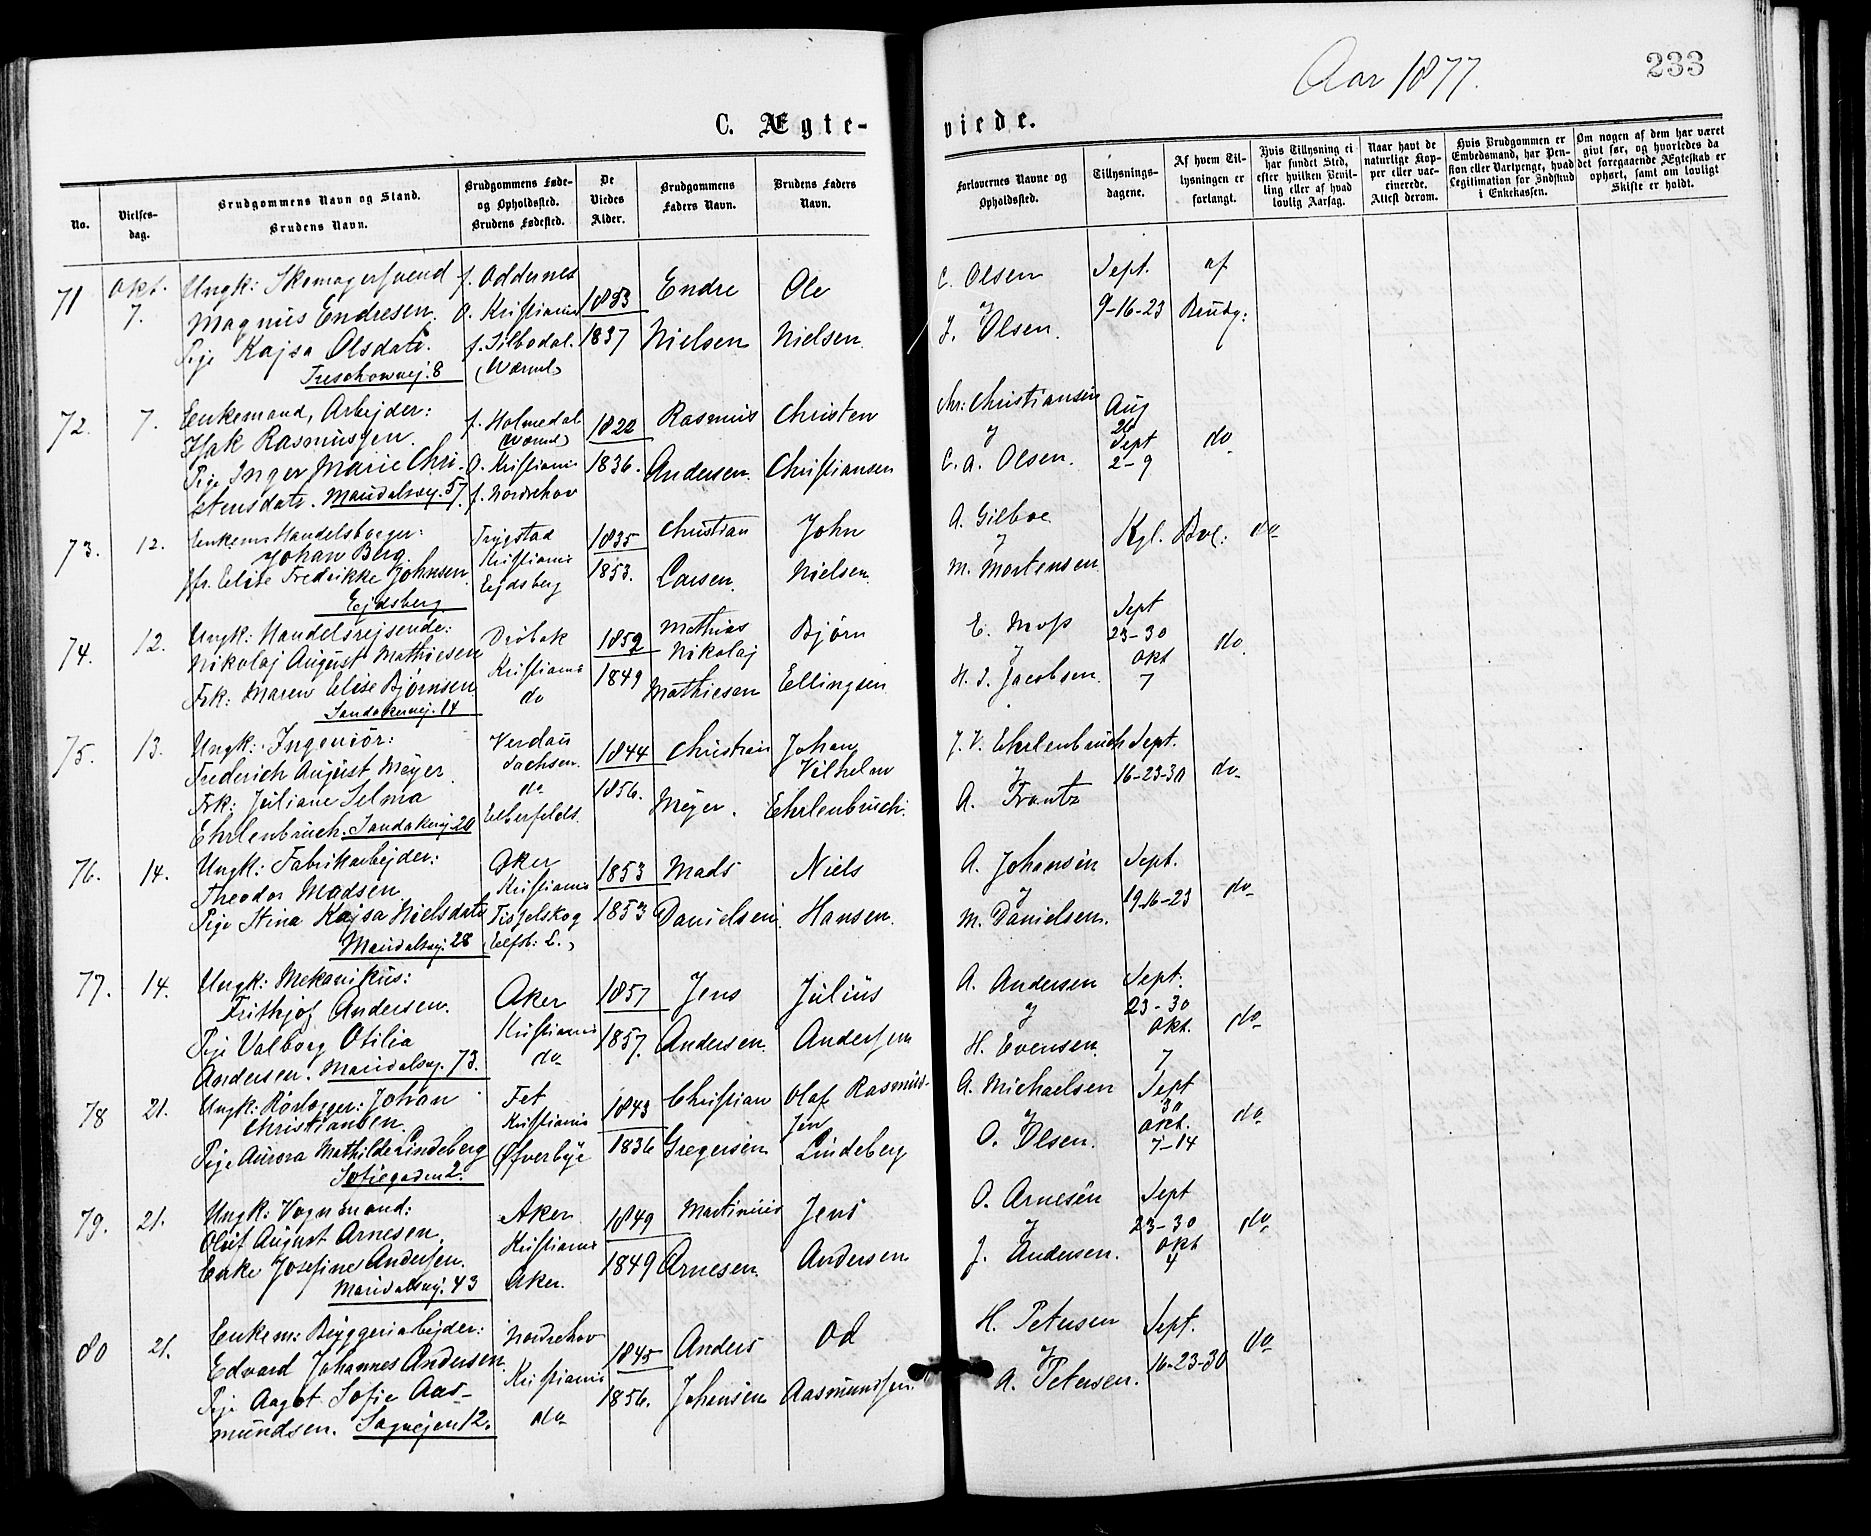 Aar 1877.
233
C. Ægte-
viede.
No.
Vielses-
dag.
Brudgommens Navn og Stand.
Brudens Navn.
Brudgommens Føde-
og Opholdssted.
Brudens Fødested.
De
Viedes
Alder.
Brudgommens
Faders Navn.
Brudens Faders
Navn.
Forlovernes Navne og
Opholdssted.
Tillysnings-
dagene.
Af hvem Til-
lysningen er
forlangt.
Hvis Tillysning ei
har fundet Sted,
efter hvilken Bevil-
ling eller af hvad
lovlig Aarsag.
Naar havt de
naturlige Kop-
per eller vac-
cinerede.
Attest derom.
Hvis Brudgommen er
Embedsmand, har Pen-
sion eller Vartpenge, hvad
Legitimation for Indskud
i Enkekassen.
Om nogen af dem har været
gift før, og hvorledes da
det foregaaende Ægteskab er
ophørt, samt om lovligt
Skifte er holdt.
71
Okt.
7.
Ungk: Skomagersvend
Magnus Endresen.
Pige Kajsa Olsdatr.
Treschowvej. 8
f. Oddernes
O. Kristiania
f. Silbodal.
(Wærml)
1853
1837
Endre
Nielsen
Ole
Nielsen
C. Olsen
J. Olsen.
Sept.
9-16-23
af
Brudg:
72.
7.
Enkemand, Arbejder:
Isak Rasmussen.
Pige Inger Marie Chri-
stensdatr. Maridalsvej. 57.
f. Holmedal
(Wærml)
O. Kristiania
f. Nordrehov
1822
1836.
Rasmus
Andersen.
Christen
Christiansen
Chr: Christiansen
C. A. Olsen.
Aug
26
Sept
2-9
do
73.
12.
Enkem: Handelsborger:
Johan Berg.
Jfr. Elise Fredrikke Johnsen
Ejdsberg
Trygstad
Kristiania
Ejdsberg
1835
1853.
Christian
Larsen.
John
Nielsen.
A. Gilboe
M. Mortensen.
Kgl. Bvl:
do
74.
12.
Ungk: Handelsrejsende:
Nikolaj August Mathiesen
Frk: Maren Elise Bjørnsen
Sandakervej. 14
Drøbak
Kristiania
do
1852
1849
Mathias
Nikolaj
Mathiesen
Bjørn
Ellingsen
E. Moss
H. J. Jacobsen.
Sept
23-30
Okt
7
do
75.
13.
Ungk: Ingeniør:
Frederich August Meyer.
Frk: Juliane Selma
Ehrlenbruch. Sandakervej. 20
Verdau
Sachsen.
do
Elberfelds.
1844
1856.
Christian
Meyer.
Johan
Vilhelm
Ehrlenbruch.
J. V. Ehrlenbruch
A. Frantz
Sept.
16-23-30
do
76.
14.
Ungk: Fabrikarbejder:
Theodor Madsen.
Pige Stina Kajsa Nielsdatr
Maridalsvej. 28
Aker
Kristiania
Tisselskog
(Elfsb: L.)
1853
1853
Mads
Danielsen.
Niels
Hansen.
A. Johansen
M. Danielsen.
Sept.
9-16-23
do
77.
14.
Ungk: Mekanikus:
Frithjof Andersen.
Pige Valborg Otilia
Andersen. Maridalsvej. 73.
Aker
Kristiania
do
1857
1857.
Jens
Andersen.
Julius
Andersen
A. Andersen
H. Evensen.
Sept.
23-30
Okt.
7
do
78
21.
Ungk: Rørlægger: Johan
Christiansen.
Pige Aurora Mathilde Lindeberg
Sofiegaden 2.
Fet
Kristiania
Øfverbye
1843
1836
Christian
Gregersen
Olaf Rasmus-
sen
Lindeberg
A. Michaelsen
O. Olsen.
Sept
30
Okt.
7-14
do
79.
21.
Ungk: Vognmand:
Oluf August Arnesen.
Enke Josefine Andersen.
Maridalsvej. 43
Aker
Kristiania
Aker.
1849
1849
Martinius
Arnesen
Jens
Andersen
O. Arnesen
J. Andersen.
Sept
23-30
Okt
do
80
21.
Enkem: Bryggeriarbejder:
Edvard Johannes Andersen.
Pige Aagot Sofie Aas-
mundsen. Sagvejen 12.
Nordrehov
Kristiania
do
1845
1856.
Anders
Johansen
Od
Aasmundsen.
H. Petersen
A. Petersen.
Sept.
16-23-30
do